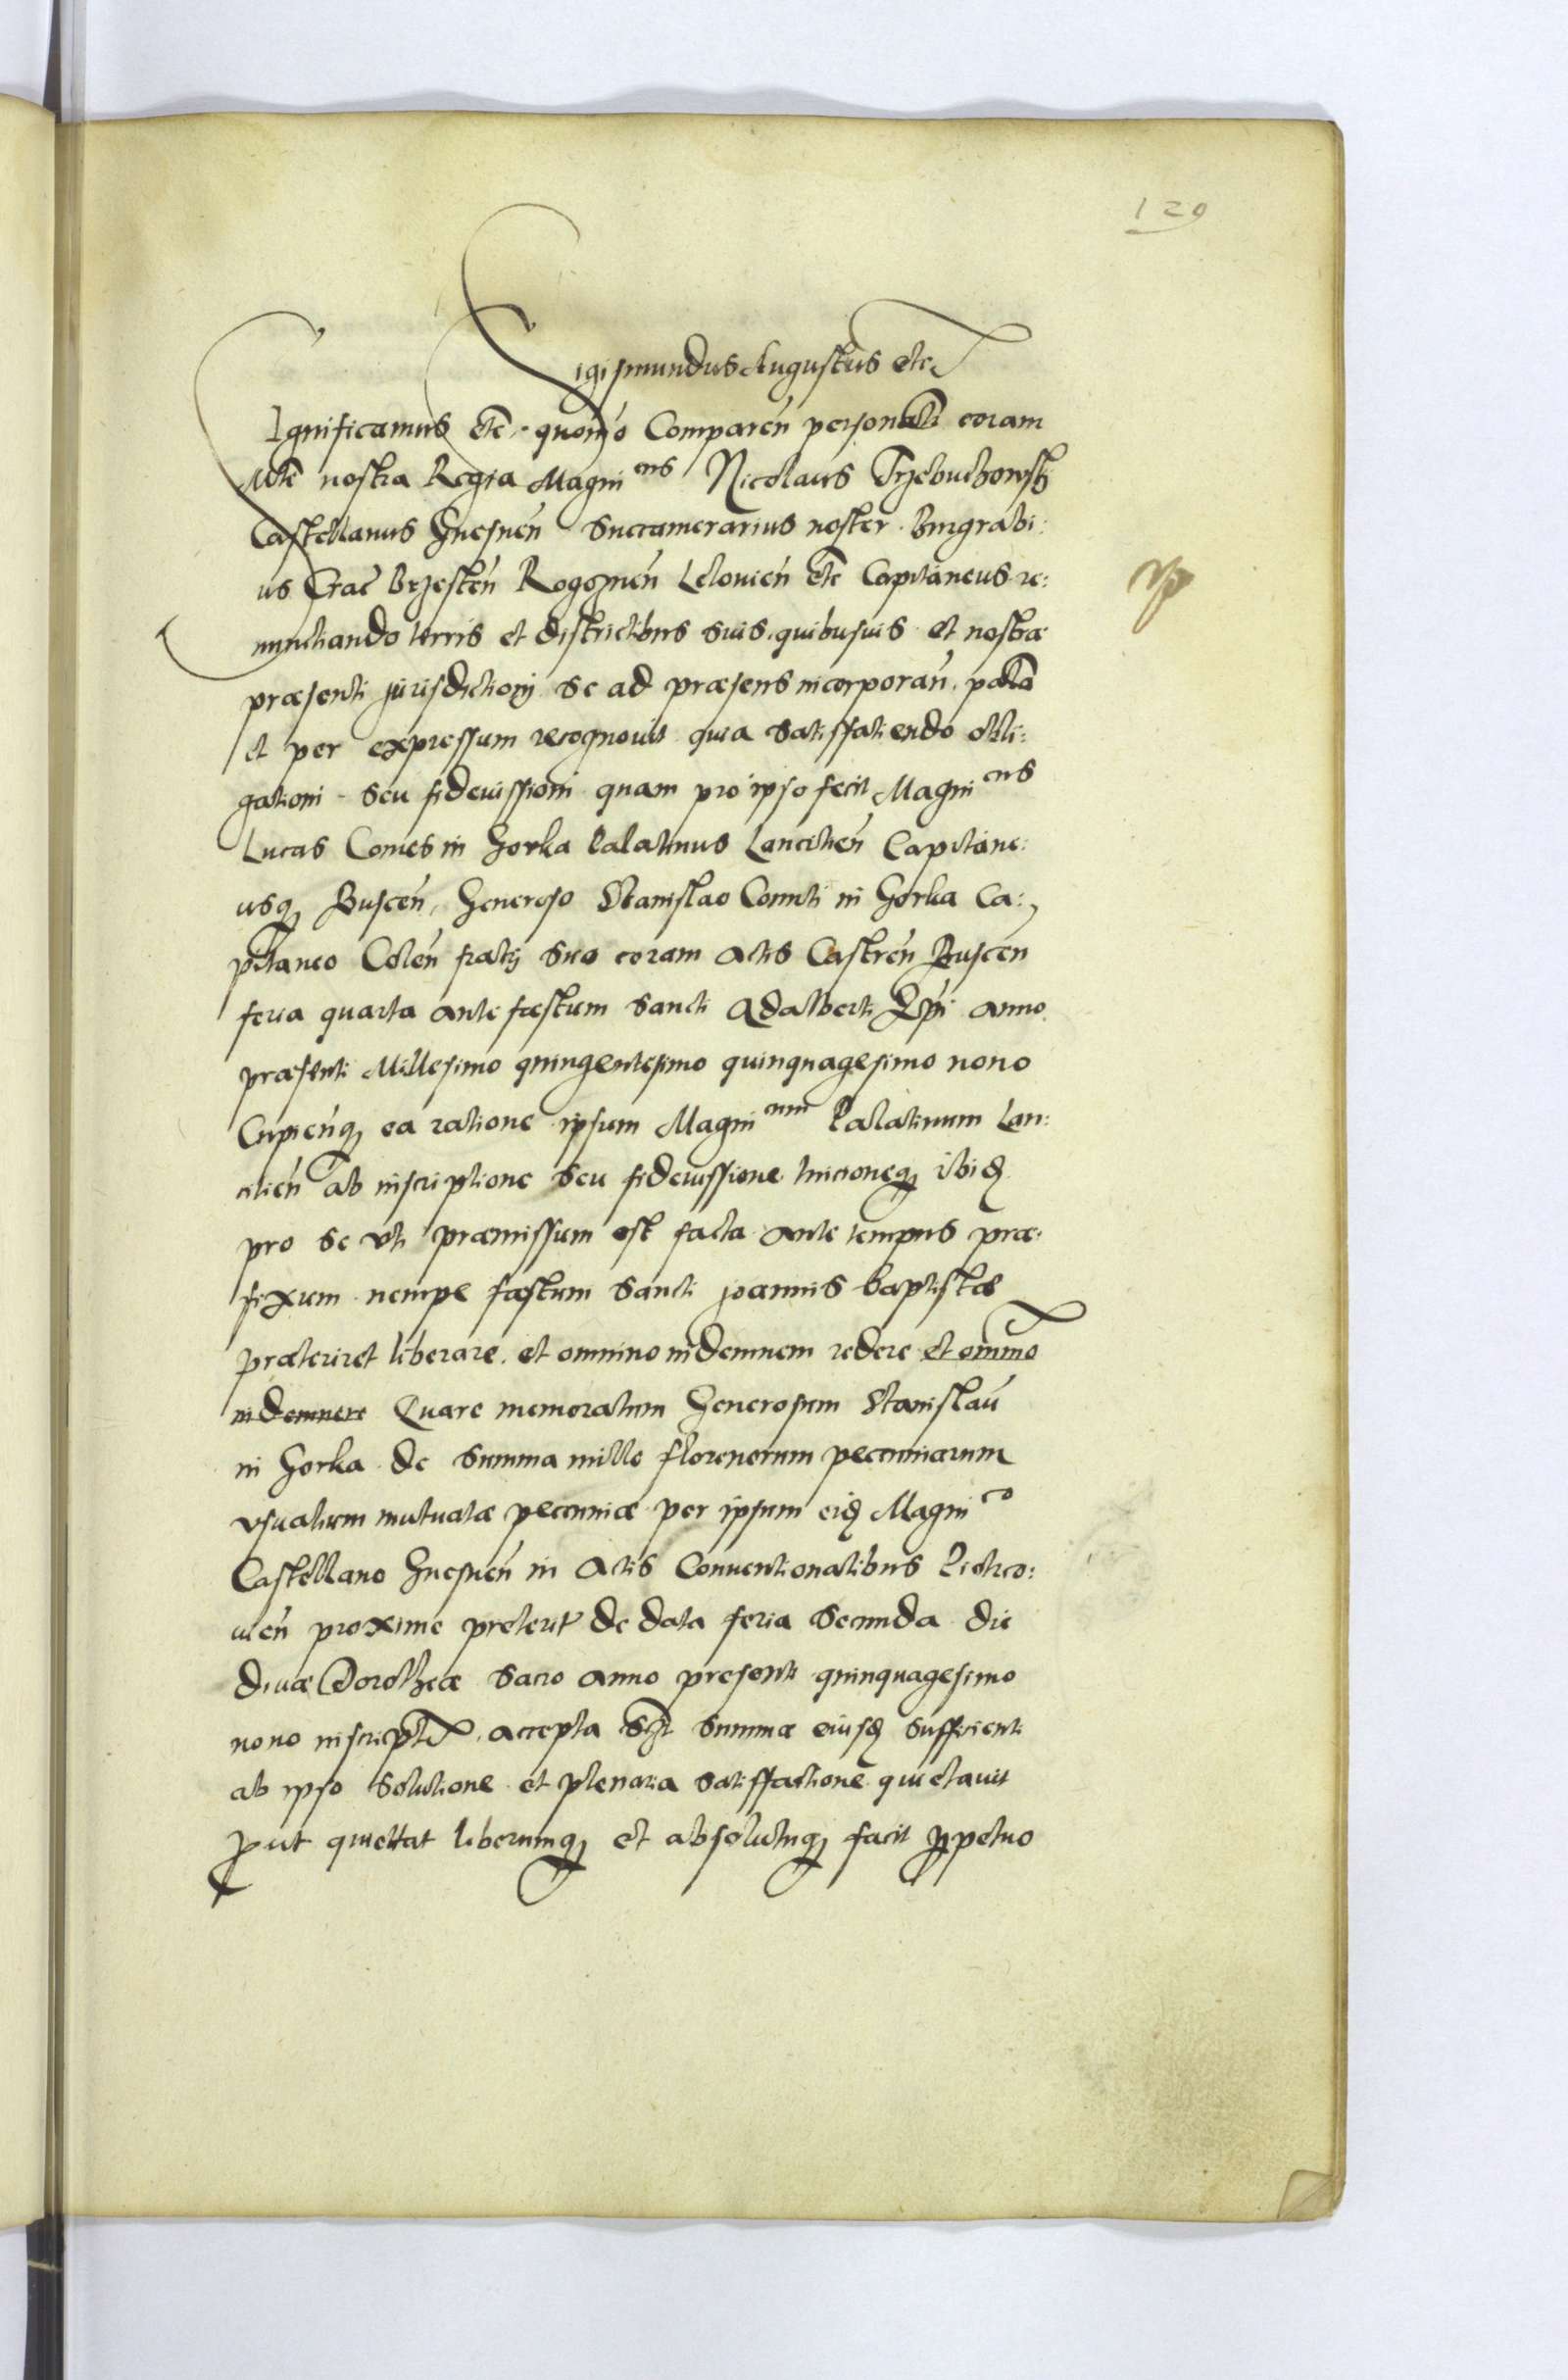 129
Sigismundus Augustus etc
Significamus etc. quomo Comparen personalit coram
Mte nostra Regia Magnicus Nicolaus Trzebuchowskj
Castellanus Gnesnen Succamerarius noster Burgrabi:
us Crac Brzesten Rogoznen Lelovien etc Capitaneus re:
nunctiando terris et districtibus suis quibusuis et nostræ
præsenti jurisdictionj se ad præsens incorporan. palam
et per expressum recognouit quia satisfatiendo obli:
gationi seu fideiussioni quam pro ipso fecit Magnicus
Lucas Comes in Gorka Palatinus Lancitien Capitane:
usq Buscen, Generoso Stanislao Comiti in Gorka Ca:
pitaneo Colen fratrj suo coram Actis Castren Buscen
feria quarta ante fæstum Sancti Adalberti Epi anno
præsenti Millesimo quingentesimo quinquagesimo nono
Cupienq ea ratione ipsum Magnicum Palatinum Lan:
citien ab inscriptione seu fideiussione ibid
pro se uti præmissum est facta ante tempus præ:
fixum nempe fæstum Sancti joannis baptistæ
præteriret liberare. et omnino indemnem redere et omnino
indemnere Quare memoratum Generosum Stanislau
in Gorka de summa mille florenorum pecuniarum
usualium mutuatæ pecuniæ per ipsum eid Magnico
Castellano Gnesnen in Actis Conventionalibus Pietrco:
uien proxime preterit de data feria Secunda die
divæ Dorotheæ Sacro anno presenti quinquagesimo
nono inscript. accepta summæ eiusd sufficienti
ab ipso Solutione et plenaria satisfactione quietauit
put quiettat liberumq et absolutuq facit ppetuo